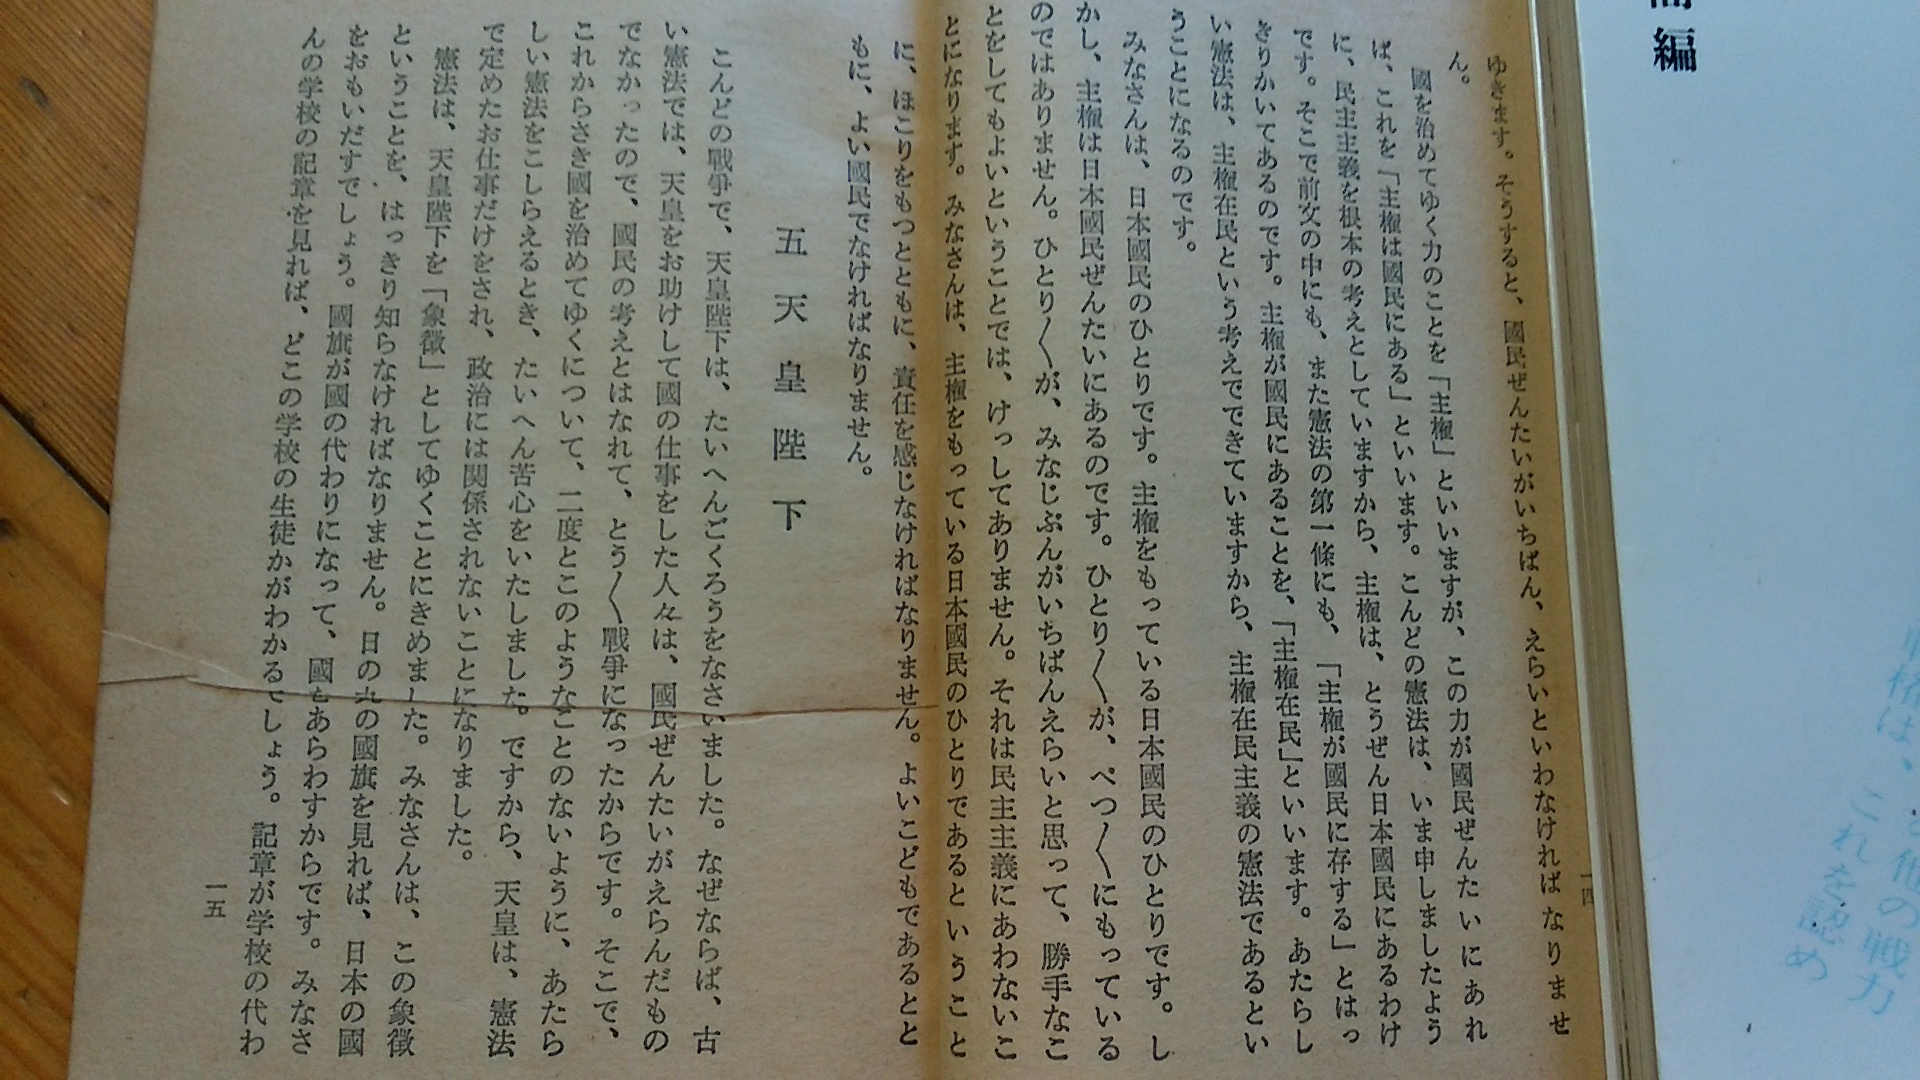 編
戦力は、これを認め
ゆきます。そうすると、國民ぜんたいがいちばん、えらいといわなければなりませ
ん。
國を治めてゆく力のことを「主権」といいますが、この力が國民ぜんたいにあれ
ば、これを「主権は國民にある」といいます。こんどの憲法は、いま申しましたよう
に、民主主義を根本の考えとしていますから、主権は、とうぜん日本國民にあるわけ
です。そこで前文の中にも、また憲法の第一條にも、「主権が國民に存する」とはっ
きりかいてあるのです。主権が國民にあることを、「主権在民」といいます。あたらし
い憲法は、主権在民という考えでできていますから、主権在民主義の憲法であるとい
うことになるのです。
みなさんは、日本國民のひとりです。主権をもっている日本國民のひとりです。し
かし、主権は日本國民ぜんたいにあるのです。ひとり〳〵が、べつ〳〵にもっている
のではありません。ひとり〳〵が、みなじぶんがいちばんえらいと思って、勝手なこ
とをしてもよいということでは、けっしてありません。それは民主主義にあわないこ
とになります。みなさんは、主権をもっている日本國民のひとりであるということ
に、ほこりをもつとともに、責任を感じなければなりません。よいこどもであるとと
もに、よい國民でなければなりません。
一四
五 天皇陛下
こんどの戰爭で、天皇陛下は、たいへんごくろうをなさいました。なぜならば、古
い憲法では、天皇をお助けして國の仕事をした人々は、國民ぜんたいがえらんだもの
でなかったので、國民の考えとはなれて、とう〳〵戰爭になったからです。そこで、
これからさき國を治めてゆくについて、二度とこのようなことのないように、あたら
しい憲法をこしらえるとき、たいへん苦心をいたしました。ですから、天皇は、憲法
で定めたお仕事だけをされ、政治には関係されないことになりました。
憲法は、天皇陛下を「象徴」としてゆくことにきめました。みなさんは、この象徴
ということを、はっきり知らなければなりません。日の丸の國旗を見れば、日本の國
をおもいだすでしょう。國旗が國の代わりになって、國をあらわすからです。みなさ
んの学校の記章を見れば、どこの学校の生徒かがわかるでしょう。記章が学校の代わ
一五